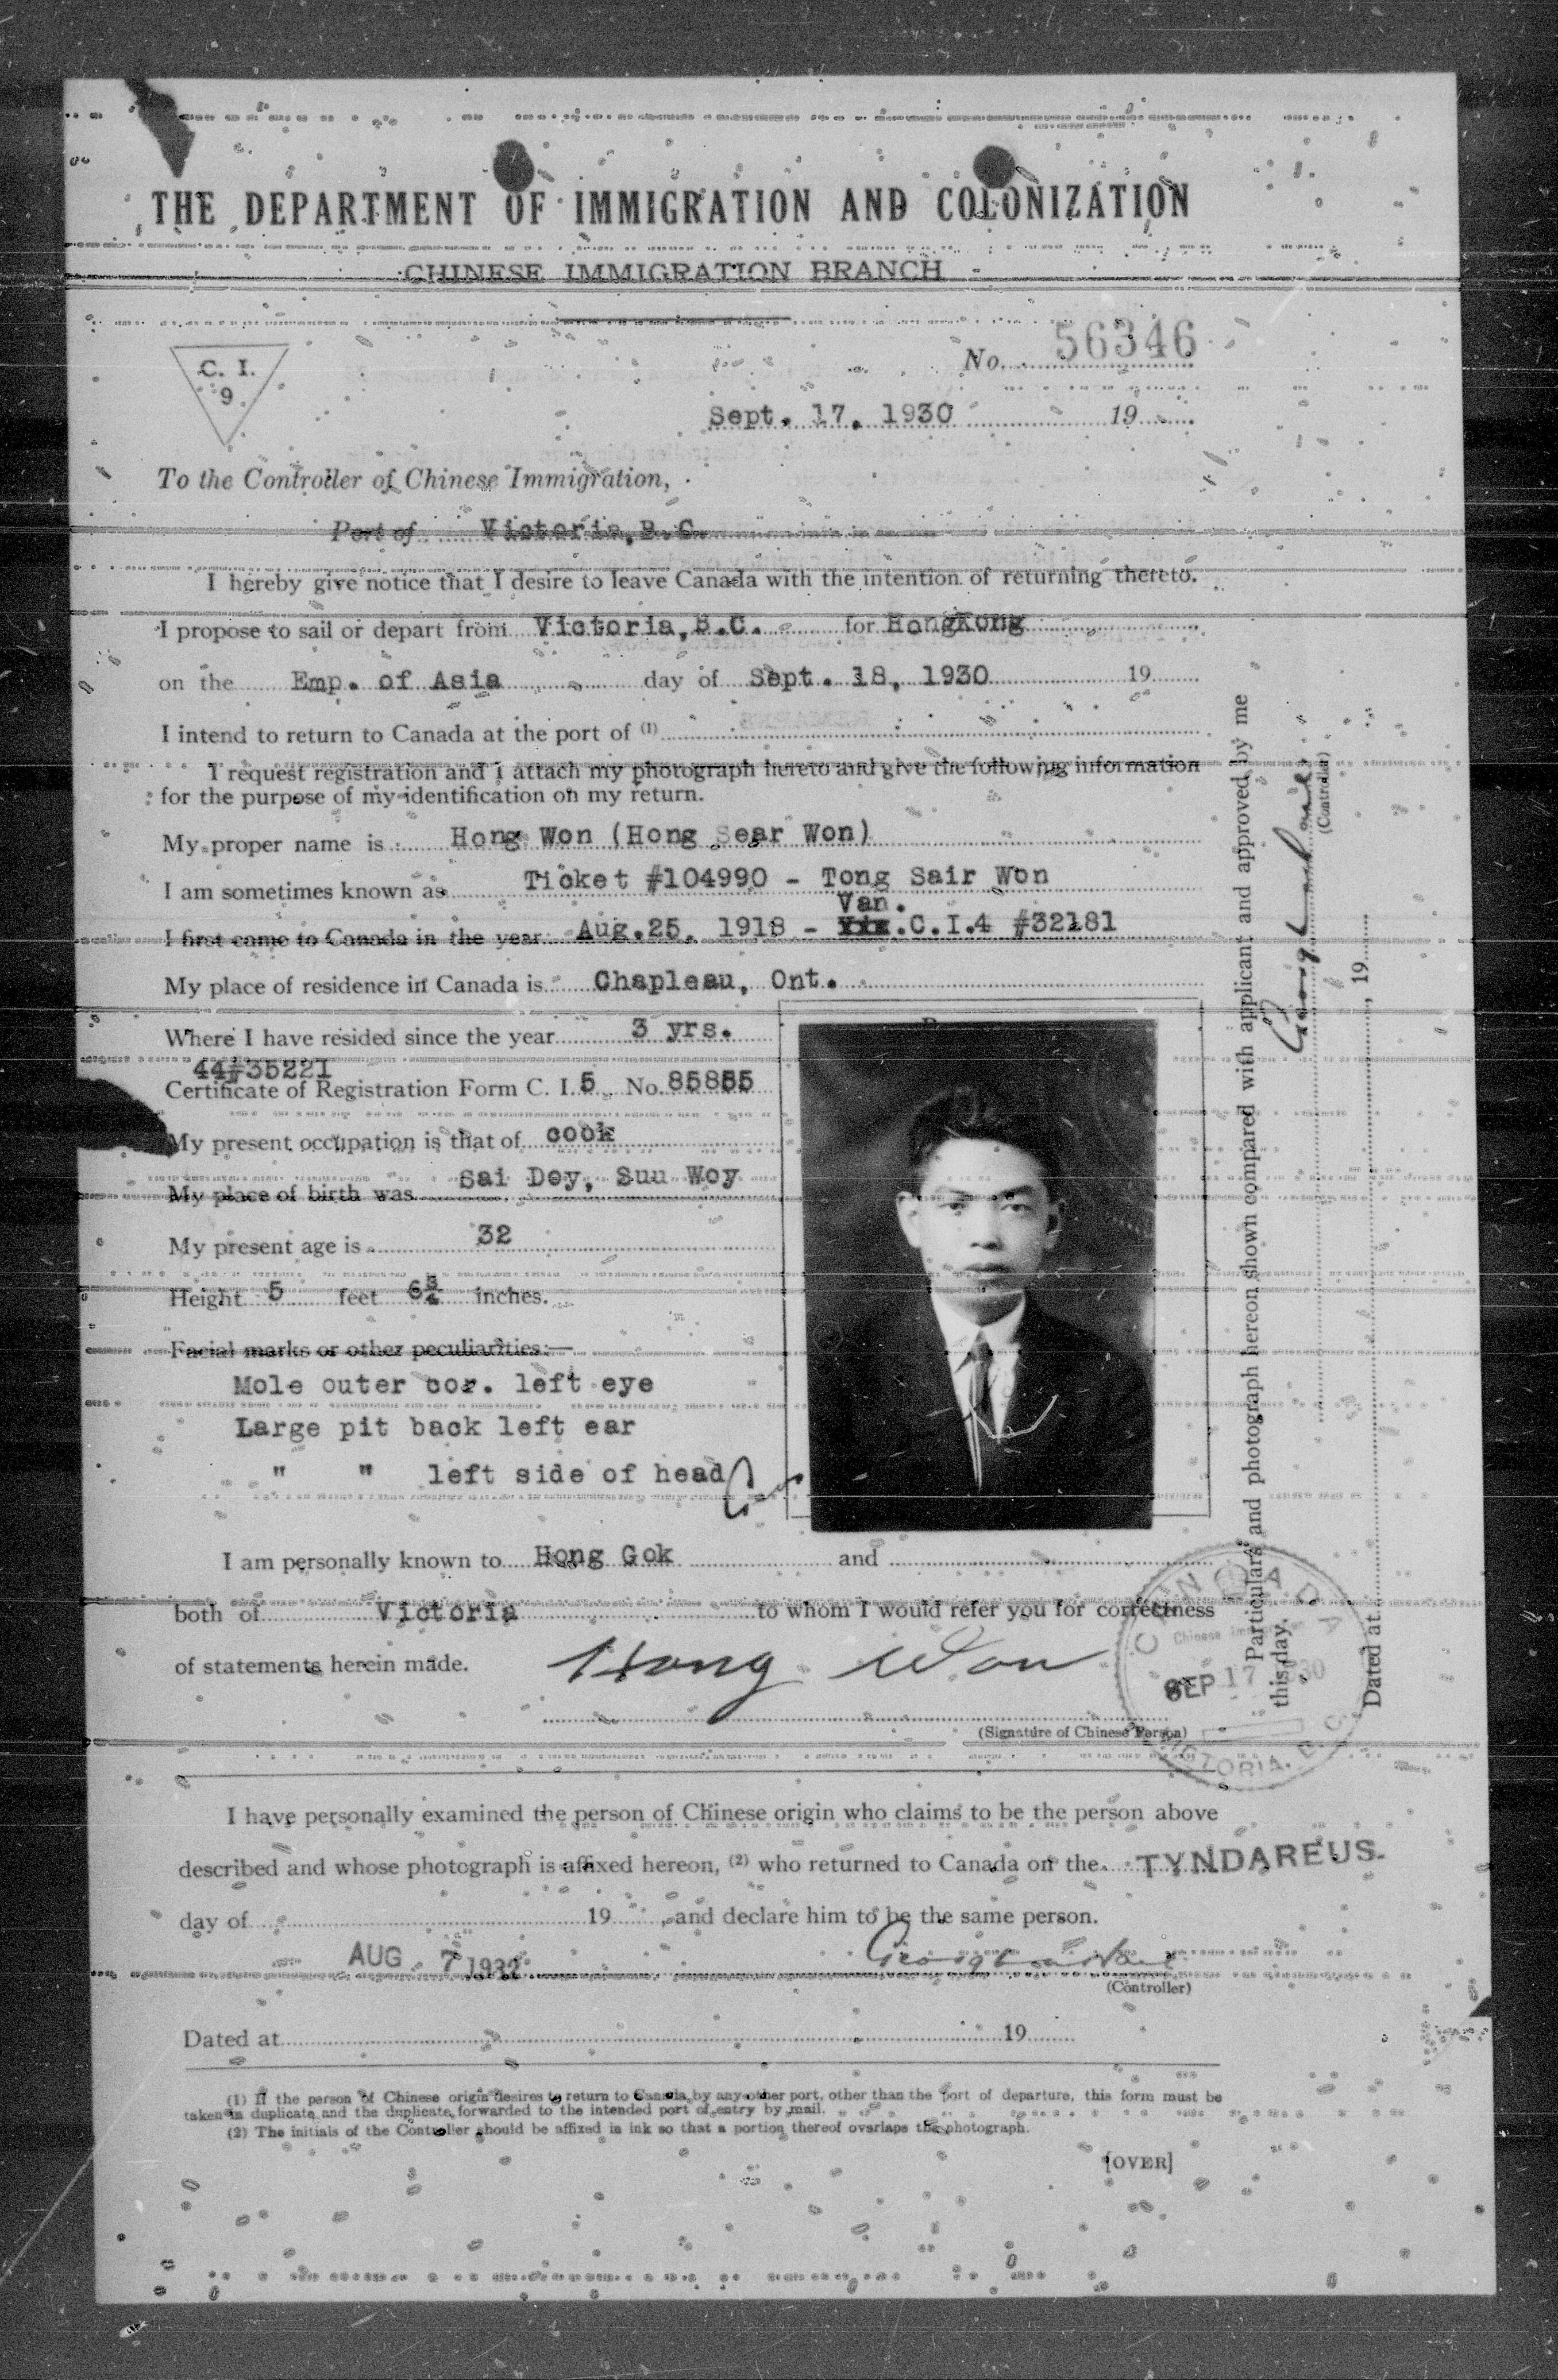 THE DEPARTMENT OF IMMIGRATION AND COLONIZATION
CHINESE IMMIGRATION BRANCH
C. I.
9
No. 56346
Sept. 17, 1930 19
To the Controller of Chinese Immigration,
Port of Victoria, B.C.
I hereby give notice that I desire to leave Canada with the intention of returning thereto.
I propose to sail or depart from Victoria, B.C. for HongKong
on the Emp. of Asia day of Sept. 18, 1930 19
I intend to return to Canada at the port of (1)
I request registration and I attach my photograph hereto and give the following information
for the purpose of my identification on my return.
My proper name is Hong Won (Hong Sear Won)
I am sometimes known as Ticket #104990 - Tong Sair Won
Van.
I first came to Canada in the year Aug. 25, 1918 - .C.I.4 #32181
My place of residence in Canada is Chapleau, Ont.
Where I have resided since the year 3 yrs.
44#35221
Certificate of Registration Form C. I. 5 No. 85855
My present occupation is that of cook
My place of birth was Sai Doy, Sun Woy
My present age is 32
Height 5 feet 6 3/4 inches.
Facial marks or other peculiarities:—
Mole outer cor. left eye
Large pit back left ear
" " left side of head
I am personally known to Hong Gok and
both of Victoria to whom I would refer you for correctness
of statements herein made. Hong Won
(Signature of Chinese Person)
Particulars and photograph hereon shown compared with applicant and approved by me
this day.
(Controller)
Dated at , 19
CANADA
Chinese Immigration
SEP 17 1930
VICTORIA, B.C.
I have personally examined the person of Chinese origin who claims to be the person above
described and whose photograph is affixed hereon, (2) who returned to Canada on the TYNDAREUS.
day of 19 , and declare him to be the same person.
AUG 7 1932
(Controller)
Dated at 19
(1) If the person of Chinese origin desires to return to Canada by any other port, other than the port of departure, this form must be
taken in duplicate and the duplicate forwarded to the intended port of entry by mail.
(2) The initials of the Controller should be affixed in ink so that a portion thereof overlaps the photograph.
[OVER]